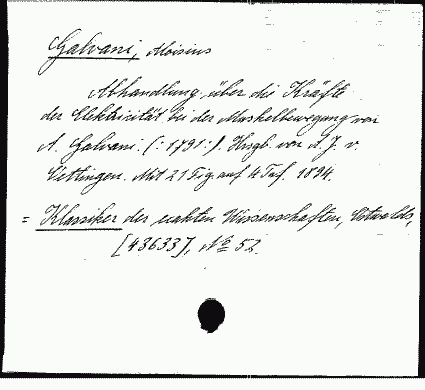 Galvani, Aloisius
Abhandlung über die Kräfte
der Elektricität bei der Muskelbewegung von
A. Galvani. (:1791:). Hrsgb. von A. J. v.
Oettingen. Mit 21 Fig. auf 4 Taf. 1894.
= Klassiker der exakten Wissenschaften, Ostwalds,
[43633], No 52.